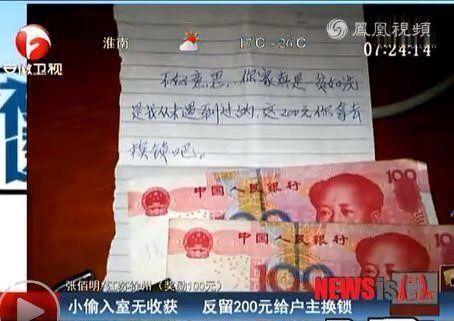 安徽卫视
淮南
17℃~26℃
鳳凰視頻
07:24:14
不好意思,你家真是一贫如洗
是我从未遇到过的,这200元你拿去
换锁吧。
中国人民银行
100
中国人民银行
100
张佰明 江苏徐州（奖励100元）
NEWSis
小偷入室无收获 反留200元给户主换锁